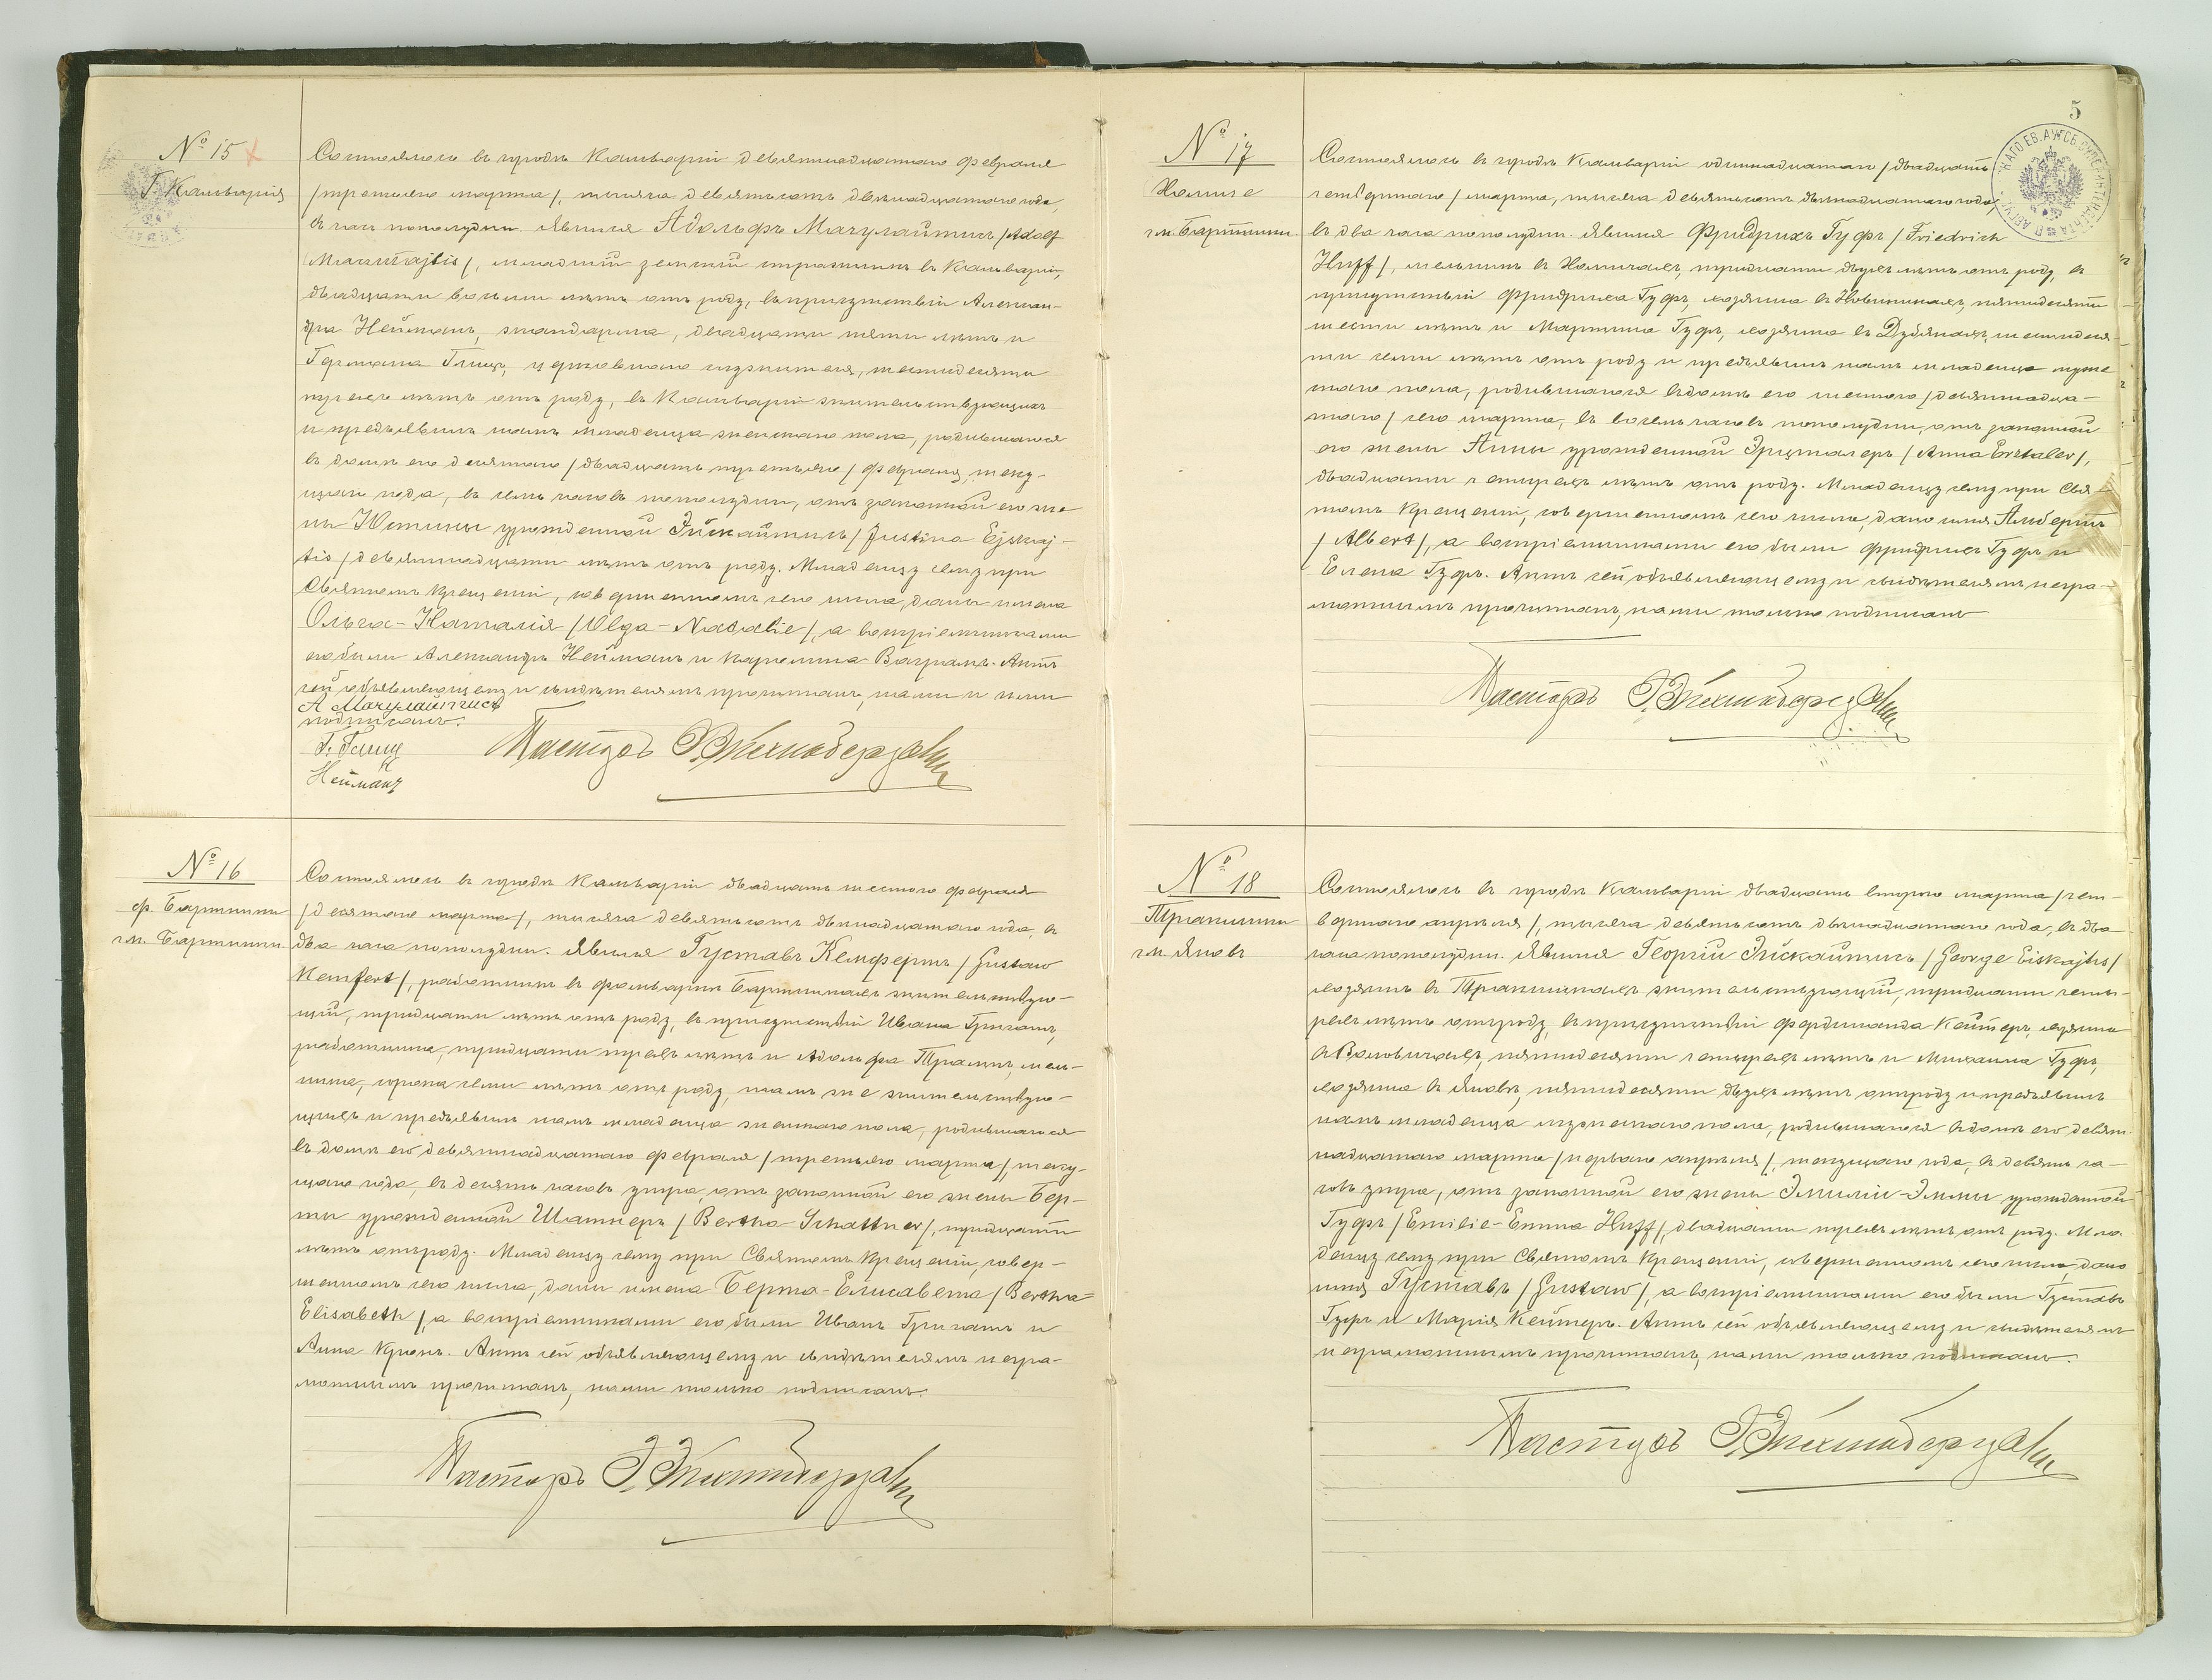 № 15
Г. Кальварія
Состоялось въ городѣ Кальваріи девятнадцатаго февраля
/третьяго марта/, тысяча девятьсотъ двѣнадцатаго года,
въ часъ пополудни. Явился Адольфъ Мачулайтисъ /Adolf
Maczulajtis/, младшій земскій стражникъ въ Кальваріи,
двадцати восьми лѣтъ отъ роду, въ присутствіи Алексан-
дра Нейманъ, жандарма, двадцати пяти лѣтъ и
Германа Глицъ, церковнаго служителя, шестидесяти
трехъ лѣтъ отъ роду, въ Кальваріи жительствующихъ
и предъявилъ намъ младенца женскаго пола, родившагося
въ домѣ его десятаго /двадцать третьяго/ февраля, теку-
щаго года, въ семь часовъ пополудни, отъ законной его же-
ны Юстины урожденной Эйскайтисъ /Justina Ejskaj-
tis/ девятнадцати лѣтъ отъ роду. Младенцу сему при
Святомъ Крещеніи, совершенномъ сего числа, даны имена
Ольга-Наталія /Olga-Natalie/, а воспріемниками
его были Александръ Нейманъ и Каролина Ваграмъ. Актъ
сей объявляющему и свидѣтелямъ прочитанъ, нами и ими
А Мачулайтисъ
подписанъ.
Г. Глиц
Нейманъ
Пасторъ
№ 16
ф. Бартники
гм. Бартники
Состоялось въ городѣ Кальваріи двадцать шестого февраля
/десятаго марта/, тысяча девятьсотъ двѣнадцатаго года, въ
два часа пополудни. Явился Густавъ Кемфертъ /Gustaw
Kemfert/, работникъ въ фольваркѣ Бартникахъ жительствую-
щій, тридцати лѣтъ отъ роду, въ присутствіи Ивана Григатъ,
работника, тридцати трехъ лѣтъ и Адольфа мель-
ника, сорока семи лѣтъ отъ роду, тамъ же жительствую-
щихъ и предъявилъ намъ младенца женскаго пола, родившагося
въ домѣ его девятнадцатаго февраля /третьяго марта/, теку-
щаго года, въ десять часовъ утра, отъ законной его жены Бер-
ты урожденной Шатнеръ /Bertha Schattner/, тридцати
лѣтъ отъ роду. Младенцу сему при Святомъ Крещеніи, совер-
шенномъ сего числа, даны имена Берта-Елисавета /Bertha-
Elisabeth/, а воспріемниками его были Иванъ Григатъ и
Анна Кронъ. Актъ сей объявляющему и свидѣтелямъ негра-
мотнымъ прочитанъ, нами только подписанъ.
Пасторъ
5
№ 17
гм. Бартники
Состоялось въ городѣ Кальваріи одиннадцатаго /двадцать
четвертаго/ марта, тысяча девятьсотъ двѣнадцатаго года,
въ два часа пополудни. Явился Фридрихъ Гуфъ /Friedrich
Huff/, мельникъ въ тридцати двухъ лѣтъ отъ роду, въ
присутствіи Фридриха Гуфъ, хозяина въ пятидесяти
шести лѣтъ и Мартина Гуфъ, хозяина въ шестидеся-
ти семи лѣтъ отъ роду и предъявилъ намъ младенца муже
скаго пола, родившагося въ домѣ его шестого /девятнадца-
таго/ сего марта, въ восемь часовъ пополудни, отъ законной
его жены Анны урожденной Эрцталеръ /Anna Erztaler/,
двадцати четырехъ лѣтъ отъ роду. Младенцу сему при Свя-
томъ Крещеніи, совершенномъ сего числа, дано имя Альбертъ
/Albert/, а воспріемниками его были Фридрихъ Гуфъ и
Елена Гуфъ. Актъ сей объявляющему и свидѣтелямъ негра-
мотнымъ прочитанъ, нами только подписанъ
Пасторъ
№ 18
гм. Яновъ
Состоялось въ городѣ Кальваріи двадцать второго марта /чет-
вертаго апрѣля/, тысяча девятьсотъ двѣнадцатаго года, въ два
часа пополудни. Явился Георгій Эйскайтисъ /George Eiskajtis/
хозяинъ въ жительствующій, тридцати четы-
рехъ лѣтъ отъ роду, въ присутствіи Фердинанда хозяина
въ пятидесяти четырехъ лѣтъ и Михаила Гуфъ,
хозяина въ Яновѣ, пятидесяти двухъ лѣтъ отъ роду и предъявилъ
намъ младенца мужескаго пола, родившагося въ домѣ его девят-
надцатаго марта /перваго апрѣля/, текущаго года, въ девять ча-
совъ утра, отъ законной его жены Эмиліи-Эммы урожденной
Гуфъ /Emilie-Emma Huff/, двадцати трехъ лѣтъ отъ роду. Мла-
денцу сему при Святомъ Крещеніи, совершенномъ сего числа, дано
имя Густавъ /Gustaw/, а воспріемниками его были Густавъ
Гуфъ и Марія Актъ сей объявляющему и свидѣтелямъ
неграмотнымъ прочитанъ, нами только подписанъ.
Пасторъ